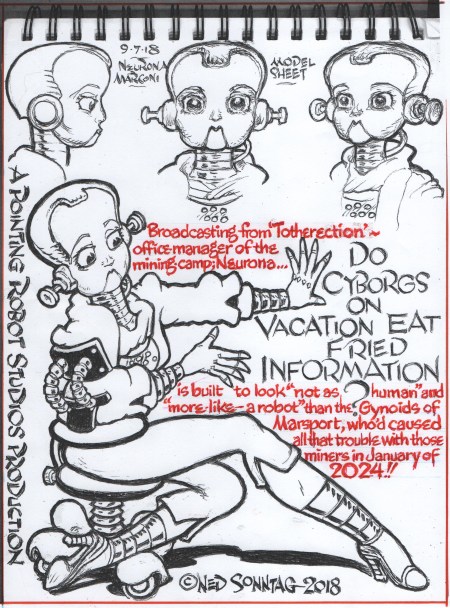 9-7-18
NEURONA
MARCONI
MODEL
SHEET
A POINTING ROBOT STUDIOS PRODUCTION
Broadcasting from "Totherection" ~
office manager of the
mining-camp; Neurona...
DO
CYBORGS
ON
VACATION EAT
FRIED
INFORMATION
?
is built to look "not as human" and
"more-like-a robot" than the Gynoids of
Marsport, who'd caused
all that trouble with those
miners in January of
2024!!
© NED SONNTAG-2018